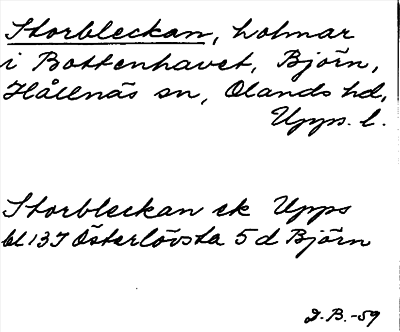 Storbleckan, holmar
i Bottenhavet, Björn,
Hållnäs sn, Olands hd,
Upps. l.
Storbleckan ek Upps
bl 13J Österlövsta 5 d Björn
J.B.-59